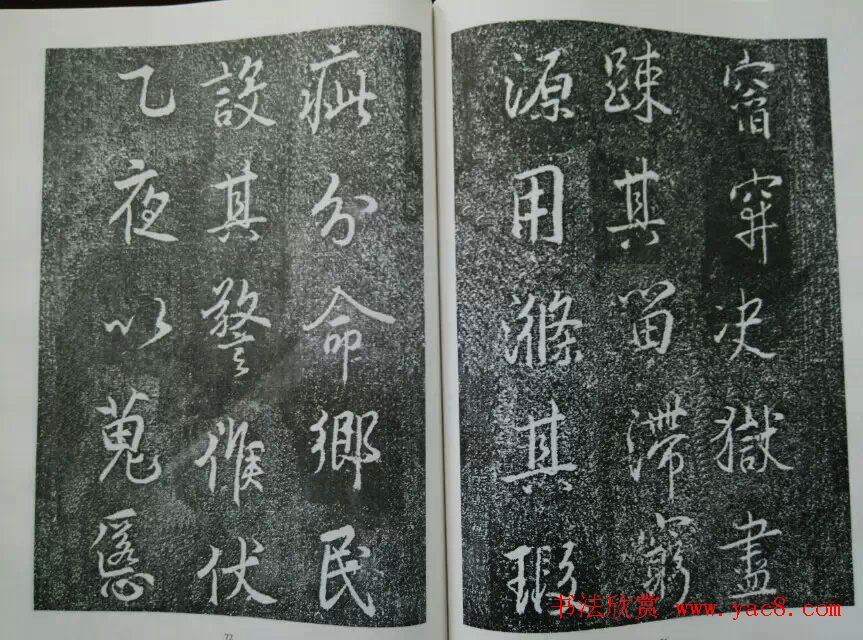 穽决獄盡
踈其留滯窮
源用滌其瑕
疵分命鄉民
設其警候伏
乙夜以蒐慝
72
书法欣赏 www.yac8.com